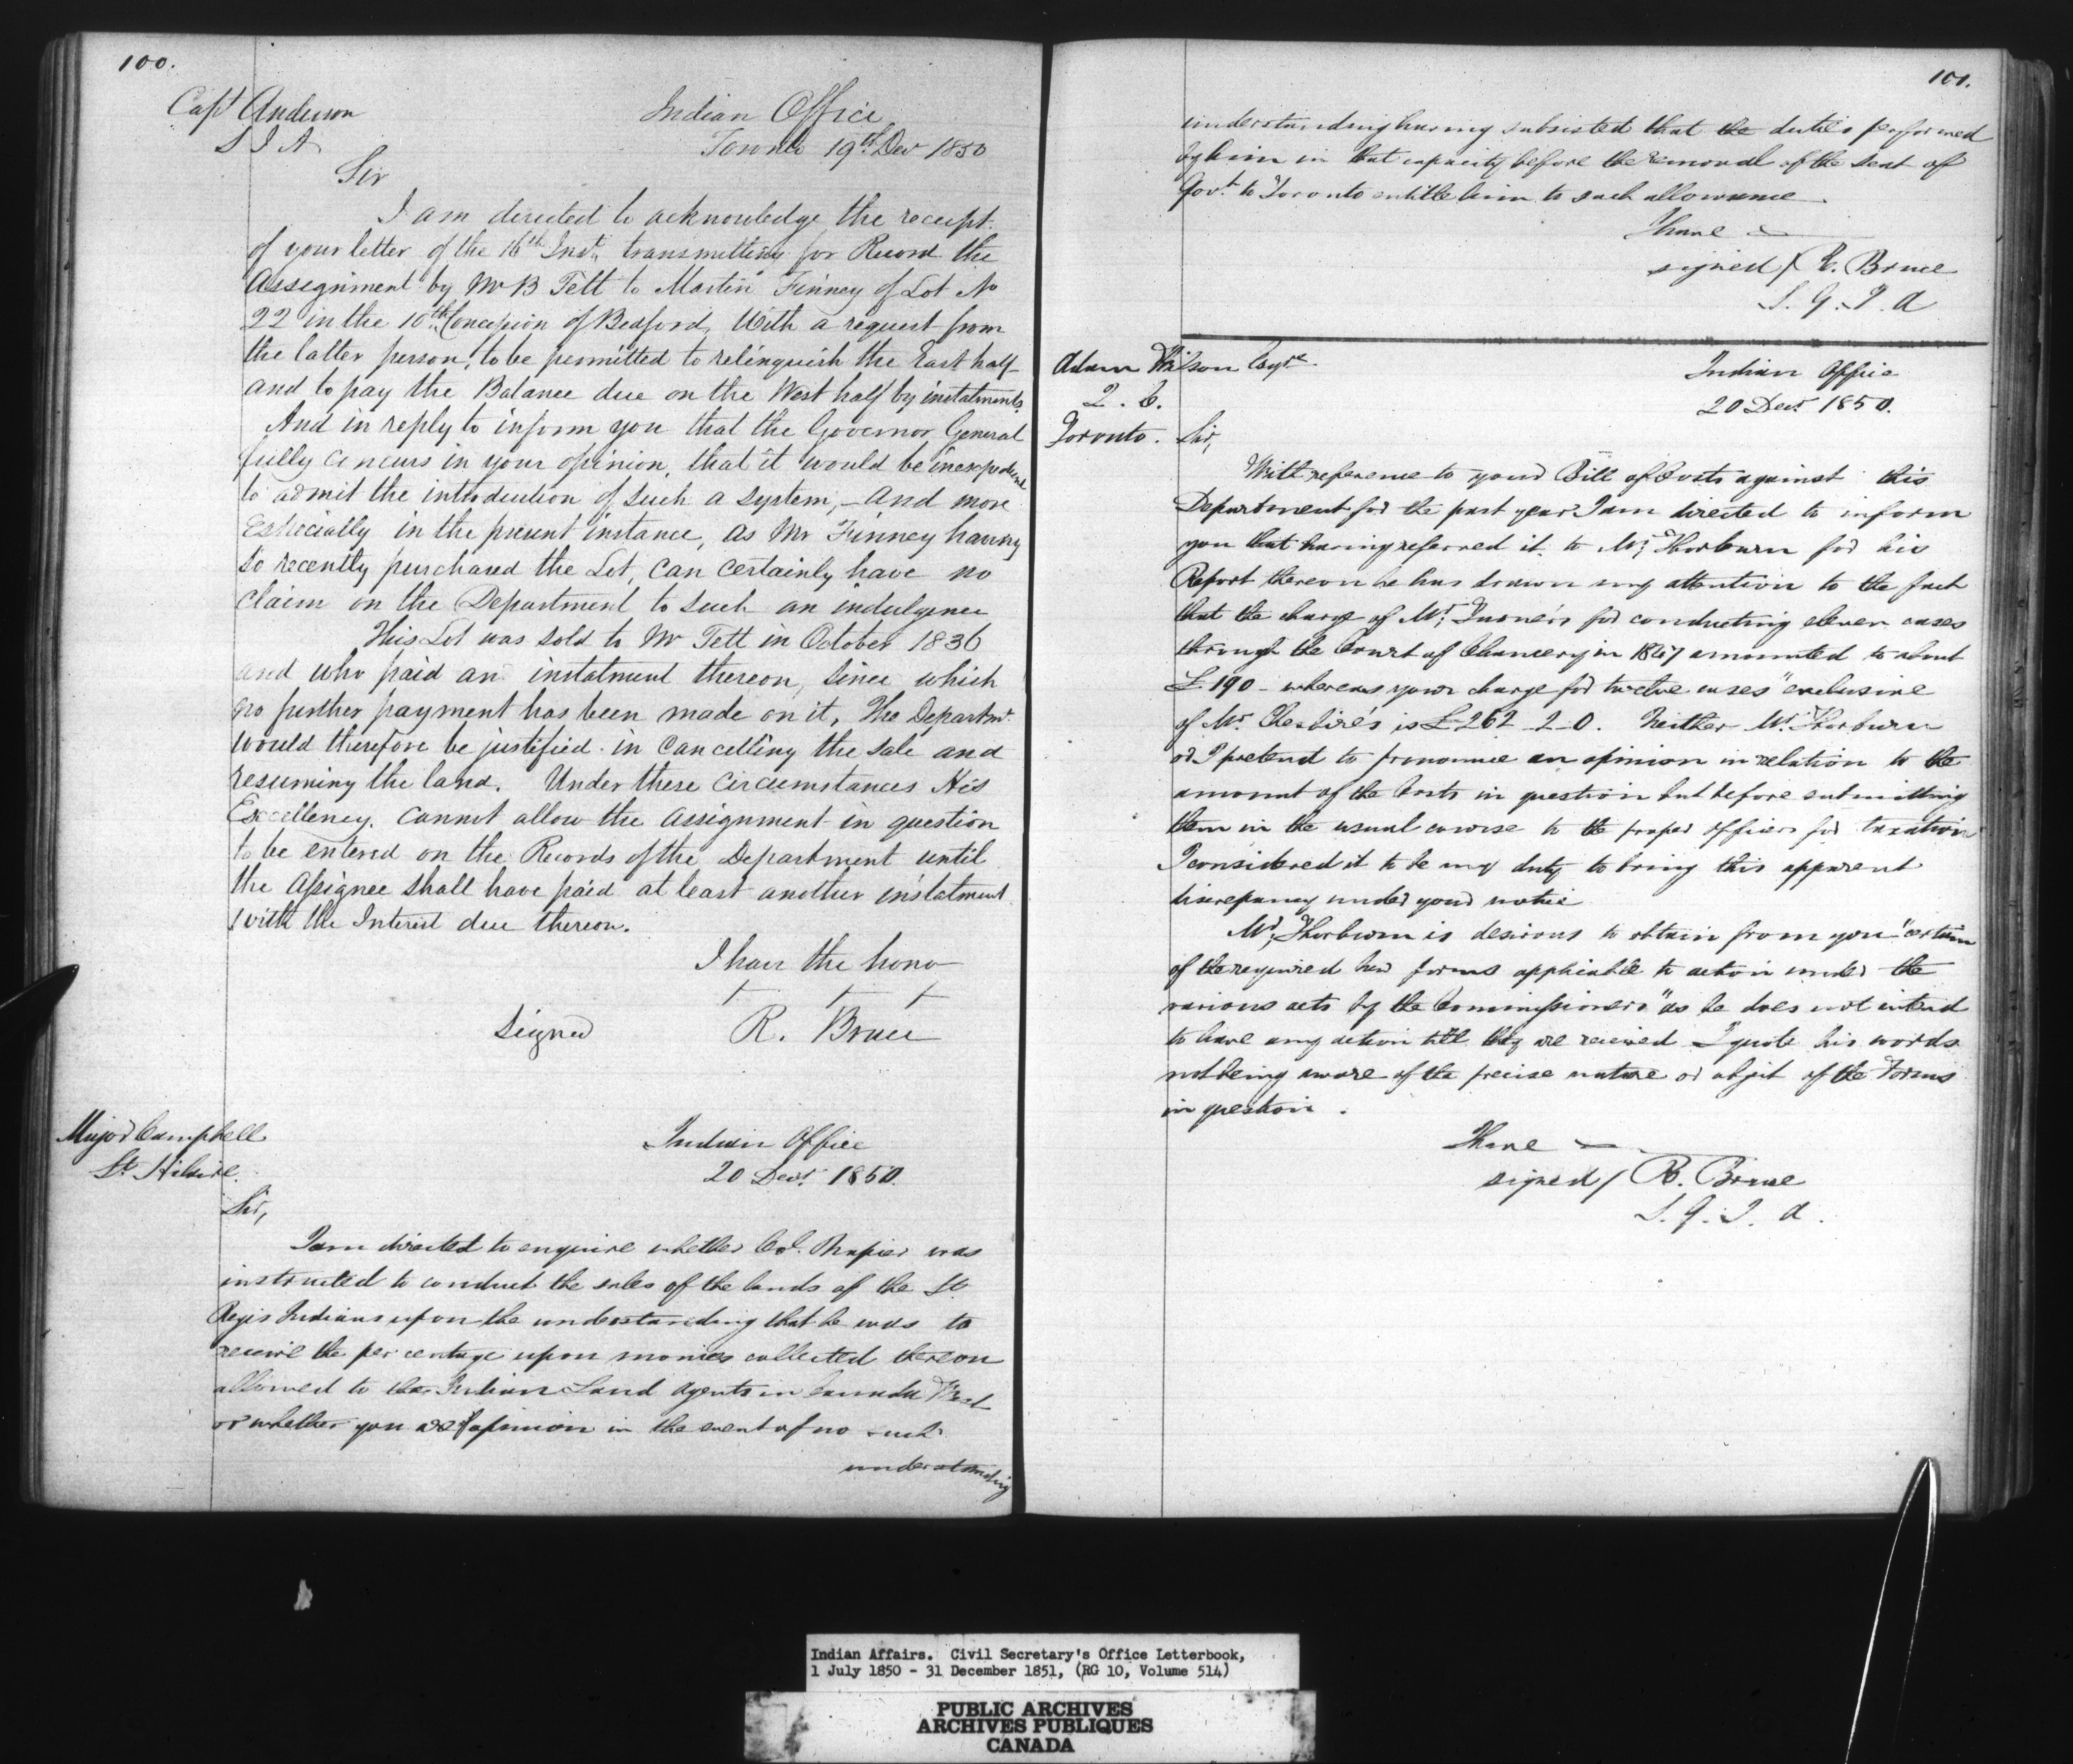 100.
Capt Anderson
S I A
Indian Office
Toronto 19th Decr 1850
Sir
I am directed to acknowledge the receipt
of your letter of the 16th Inst, transmitting for Record the
Assignment by Mr B Tett to Martin Finney of Lot No
22 in the 10th Concession of Bedford, With a request from
the latter person, to be permitted to relinquish the East half
and to pay the Balance due on the West half by instalments.
And in reply to inform you that the Governor General
fully concurs in your opinion, that it would be inexpedient
to admit the introduction of such a system, - and more
Especially in the present instance, as Mr Finney having
so recently purchased the Lot, can certainly have no
claim on the Department to such an indulgence
This Lot was sold to Mr Tett in October 1836
and who paid an instalment thereon, since which
no further payment has been made on it, The Departmt.
would therefore be justified in Cancelling the sale and
resuming the land. Under these circumstances His
Excellency. cannot allow the assignment in question
to be entered on the Records of the Department until
the Assignee shall have paid at least another instalment
with the Interest due thereon.
I have the hono
Signed R. Bruce
Major Campbell
St. Hilaire.
Indian Office
20 Decr. 1850.
Sir,
I am directed to enquire whether Col. Napier was
instructed to conduct the sales of the lands of the St
Regis Indians upon the understanding that he was to
receive the per centage upon monies collected thereon
allowed to the Indian Land Agents in Canada West
or whether you are of opinion in the event of no such
understanding
101.
understanding having subsisted that the duties performed
by him in that capacity before the removal of the seat of
Govt. to Toronto entitle him to such allowance.
I have
signed / R. Bruce
S. G. I. A
Adam Wilson Esqre.
Q. C.
Toronto.
Indian Office
20 Decr. 1850.
Sir,
With reference to your Bill of Costs against this
Department for the past year I am directed to inform
you that having referred it to Mr. Thorburn for his
Report thereon he has drawn my attention to the fact
that the charge of Mr. Turner's for conducting eleven cases
through the Court of Chancery in 1847 amounted to about
£190 - whereas your charge for twelve cases "exclusive
of Mr. Cheshire's is £262-2-0. Neither Mr. Thorburn
or I pretend to pronounce an opinion in relation to the
amount of the Costs in question but before submitting
them in the usual course to the proper officer for taxation
I considered it to be my duty to bring this apparent
discrepancy under your notice
Mr. Thorburn is desirous to obtain from you "certain
of the required law forms applicable to action under the
various acts by the Commissioners" as he does not intend
to have any action till they are received. I quote his words
not being aware of the precise nature or object of the Forms
in question.
I have
signed / R. Bruce
S. G. I. A.
Indian Affairs. Civil Secretary's Office Letterbook,
1 July 1850 - 31 December 1851, (RG 10, Volume 514)
PUBLIC ARCHIVES
ARCHIVES PUBLIQUES
CANADA